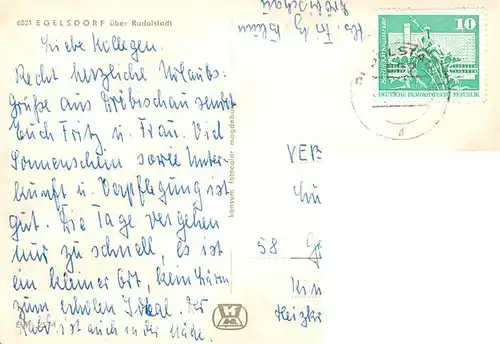 6821 EGELSDORF über Rudolstadt
Liebe Kollegen.
Recht herzliche Urlaubs-
grüße aus Dröbischau sendet
Euch Fritz u. Frau. Viel
Sonnenschein sowie Unter-
kunft u. Verpflegung ist
gut. Die Tage vergehen
nur zu schnell, es ist
ein kleiner Ort, kein Lärm
zum erholen Ideal. Der
Wald ist auch in der Nähe.
konsum fotocolor magdeburg
Dröbischau
10
DEUTSCHE DEMOKRATISCHE REPUBLIK
VE
58 Ge